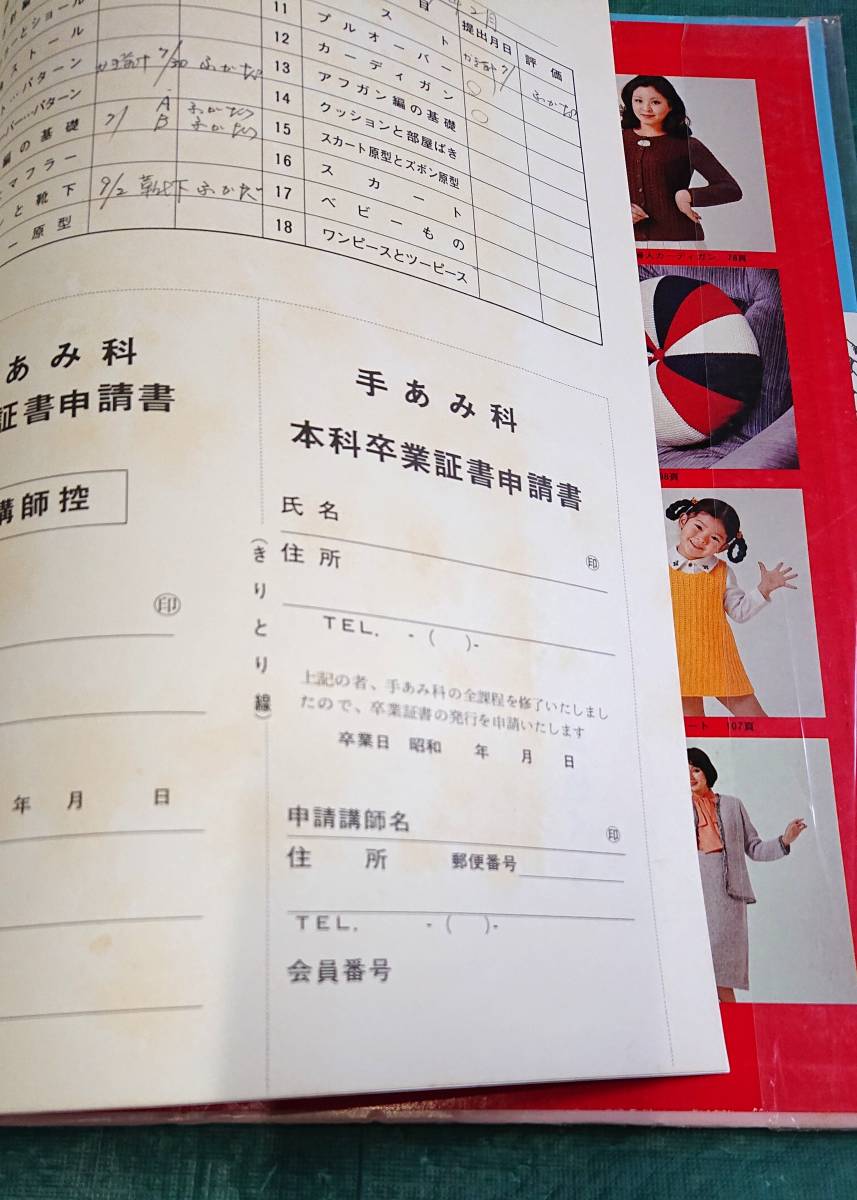 目 提出月日 評価
とショール
ストール
パターン 7/30
パーパターン A
編の基礎 7/ B
マフラー
と靴下 9/2 靴下
ー原型
11 スト
12 プルオーバー
13 カーディガン ○
14 アフガン編の基礎 ○
15 クッションと部屋ばき
16 スカート原型とズボン原型
17 スカート
ベビーもの
18 ワンピースとツーピース
あみ科
証書申請書
講師控
㊞
年 月 日
(きりとり線)
手あみ科
本科卒業証書申請書
氏名
㊞
住所
TEL. -( )-
上記の者、手あみ科の全課程を修了いたしまし
たので、卒業証書の発行を申請いたします
卒業日 昭和 年 月 日
申請講師名
㊞
住所 郵便番号
TEL. -( )-
会員番号
人カーディガン 78頁
98頁
ート 107頁